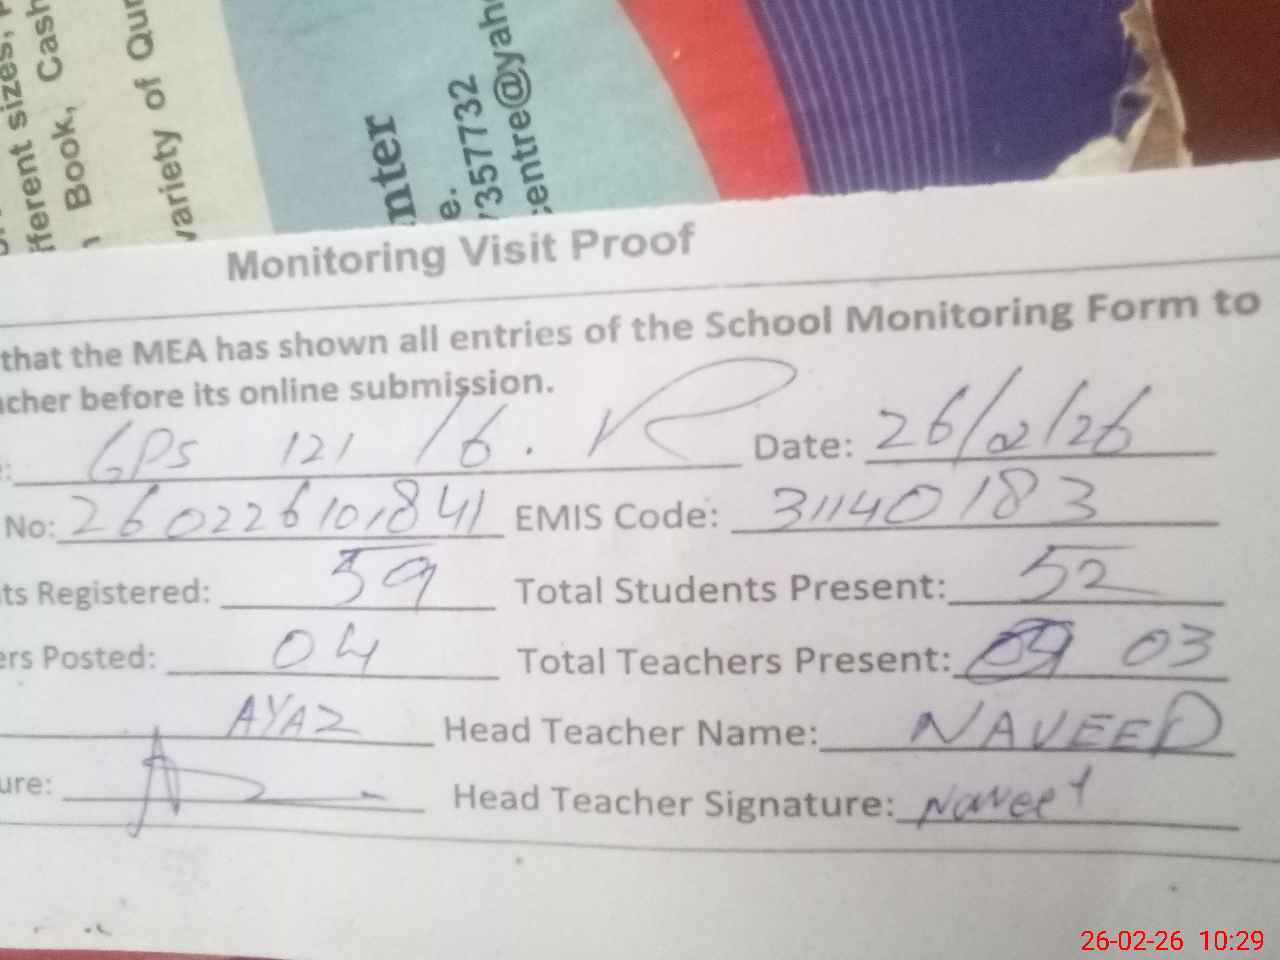 fferent sizes,
Book, Cash
variety of Qur
nter
e.
357732
entre@yah
Monitoring Visit Proof
that the MEA has shown all entries of the School Monitoring Form to
acher before its online submission.
GPS 121 /6. R Date: 26/02/26
No: 260226101841 EMIS Code: 31140183
ts Registered: 59 Total Students Present: 52
ers Posted: 04 Total Teachers Present: 03
AYAZ Head Teacher Name: NAVEED
ure: Head Teacher Signature: Naveed
26-02-26 10:29